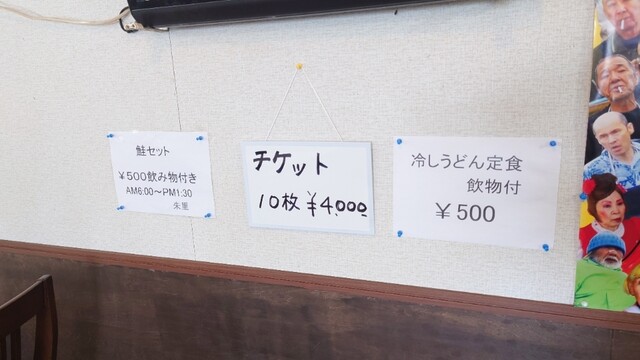 鮭セット
￥500飲み物付き
AM6:00～PM1:30
朱里
チケット
10枚 ¥4,000
冷しうどん定食
飲物付
￥500